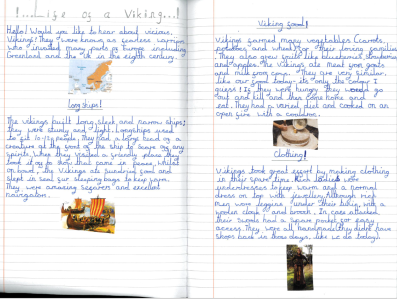 !...Life of a Viking...!
Hello! Would you like to hear about vicious,
Vikings? They were known as fearless warriors
who invaded many parts of Europe including
Greenland and the UK in the eighth century.
Longships!
The Vikings built long, sleek and narrow ships;
they were sturdy and light. Longships used
to fit to people. They had a large head of a
creature at the front of the ship to scare off any
spirits. When they visited a friendly place they
took it off to show that they came in peace. Whilst
on board, the Vikings ate sundried food and
slept in seal fur sleeping bags to keep warm.
They were amazing seafarers and excellent
navigators.
Viking food!
Vikings farmed many vegetables (carrots,
potatoes and wheat) for their loving families.
They also grew fruits like blueberries, strawberries
and apples. The Vikings ate meat from goats
and milk from cows. They are very similar
like our food today- its only the colour I
guess! If they were hungry they would go
out and kill and then come home and
eat. They had a varied diet and cooked on an
open fire with a cauldron.
Clothing!
Vikings took great effort by making clothing
in their spare time. Rich ladies wore
underdresses to keep warm and a normal
dress on top with jewellery. Although rich
men wore leggins under their tunic, with a
woolen cloak and brooch. In case attacked
their swords had a spare pocket for easy
access. They were all handmade. They didn't have
shops back in those days, like we do today!